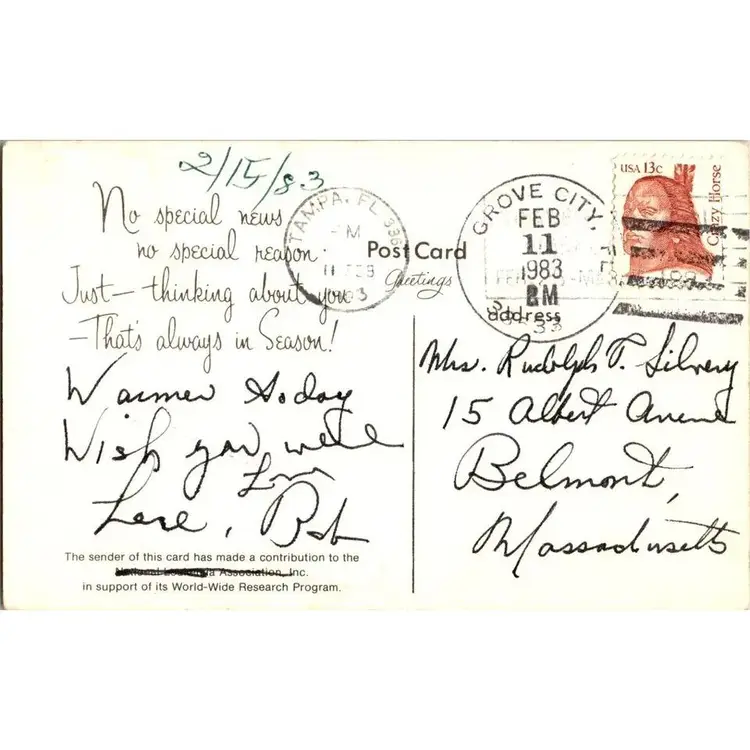 2/15/83
No special news
no special reason.
Just—thinking about you
—That's always in Season!
Warmer today
Wish you were
here, Love
Bob
The sender of this card has made a contribution to the
Association, Inc.
in support of its World-Wide Research Program.
TAMPA, FL 336
PM
11 FEB
Post Card
Greetings
address
GROVE CITY,
FEB
11
1983
PM
USA 13c
Crazy Horse
Mrs. Rudolph T.
15 Albert Avenue
Belmont,
Massachusetts